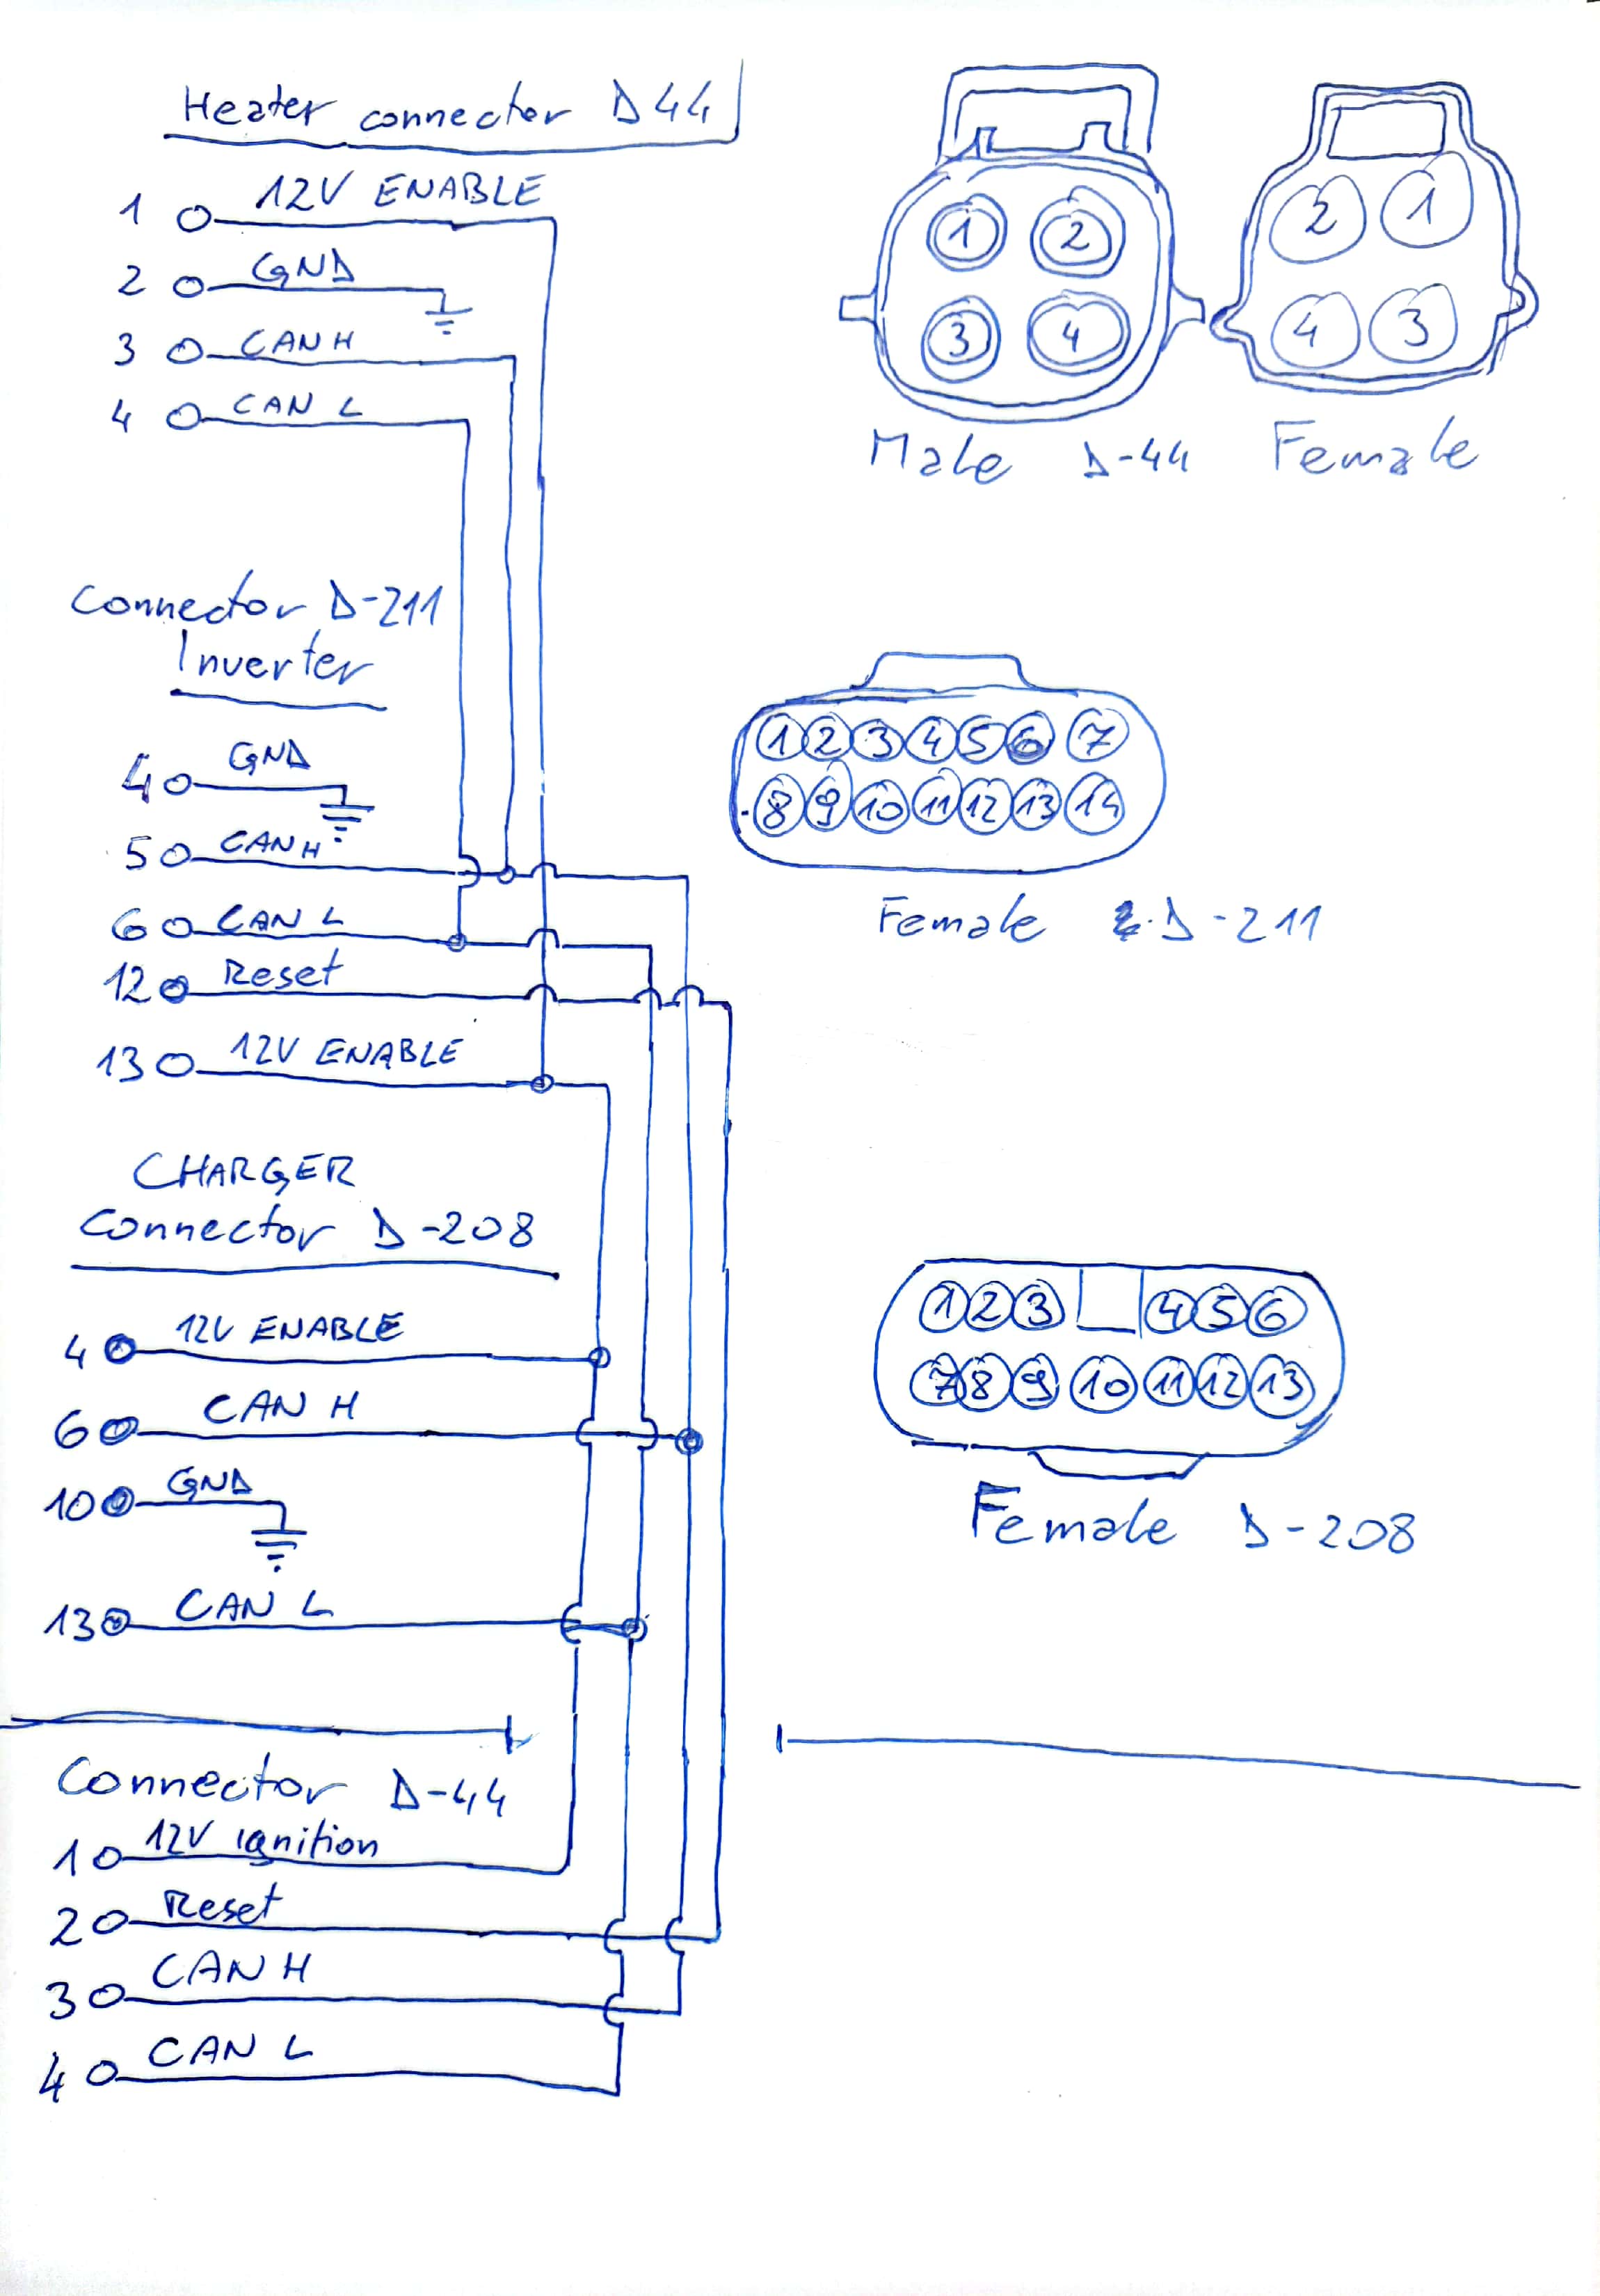 Heater connector D44
1 12V ENABLE
2 GND
3 CAN H
4 CAN L
1 2
3 4
Male D-44
2 1
4 3
Female
Connector D-211
Inverter
4 GND
5 CAN H
6 CAN L
12 Reset
13 12V ENABLE
1 2 3 4 5 6 7
8 9 10 11 12 13 14
Female D-211
CHARGER
Connector D-208
4 12V ENABLE
6 CAN H
10 GND
13 CAN L
1 2 3 4 5 6
7 8 9 10 11 12 13
Female D-208
Connector D-44
1 12V ignition
2 Reset
3 CAN H
4 CAN L